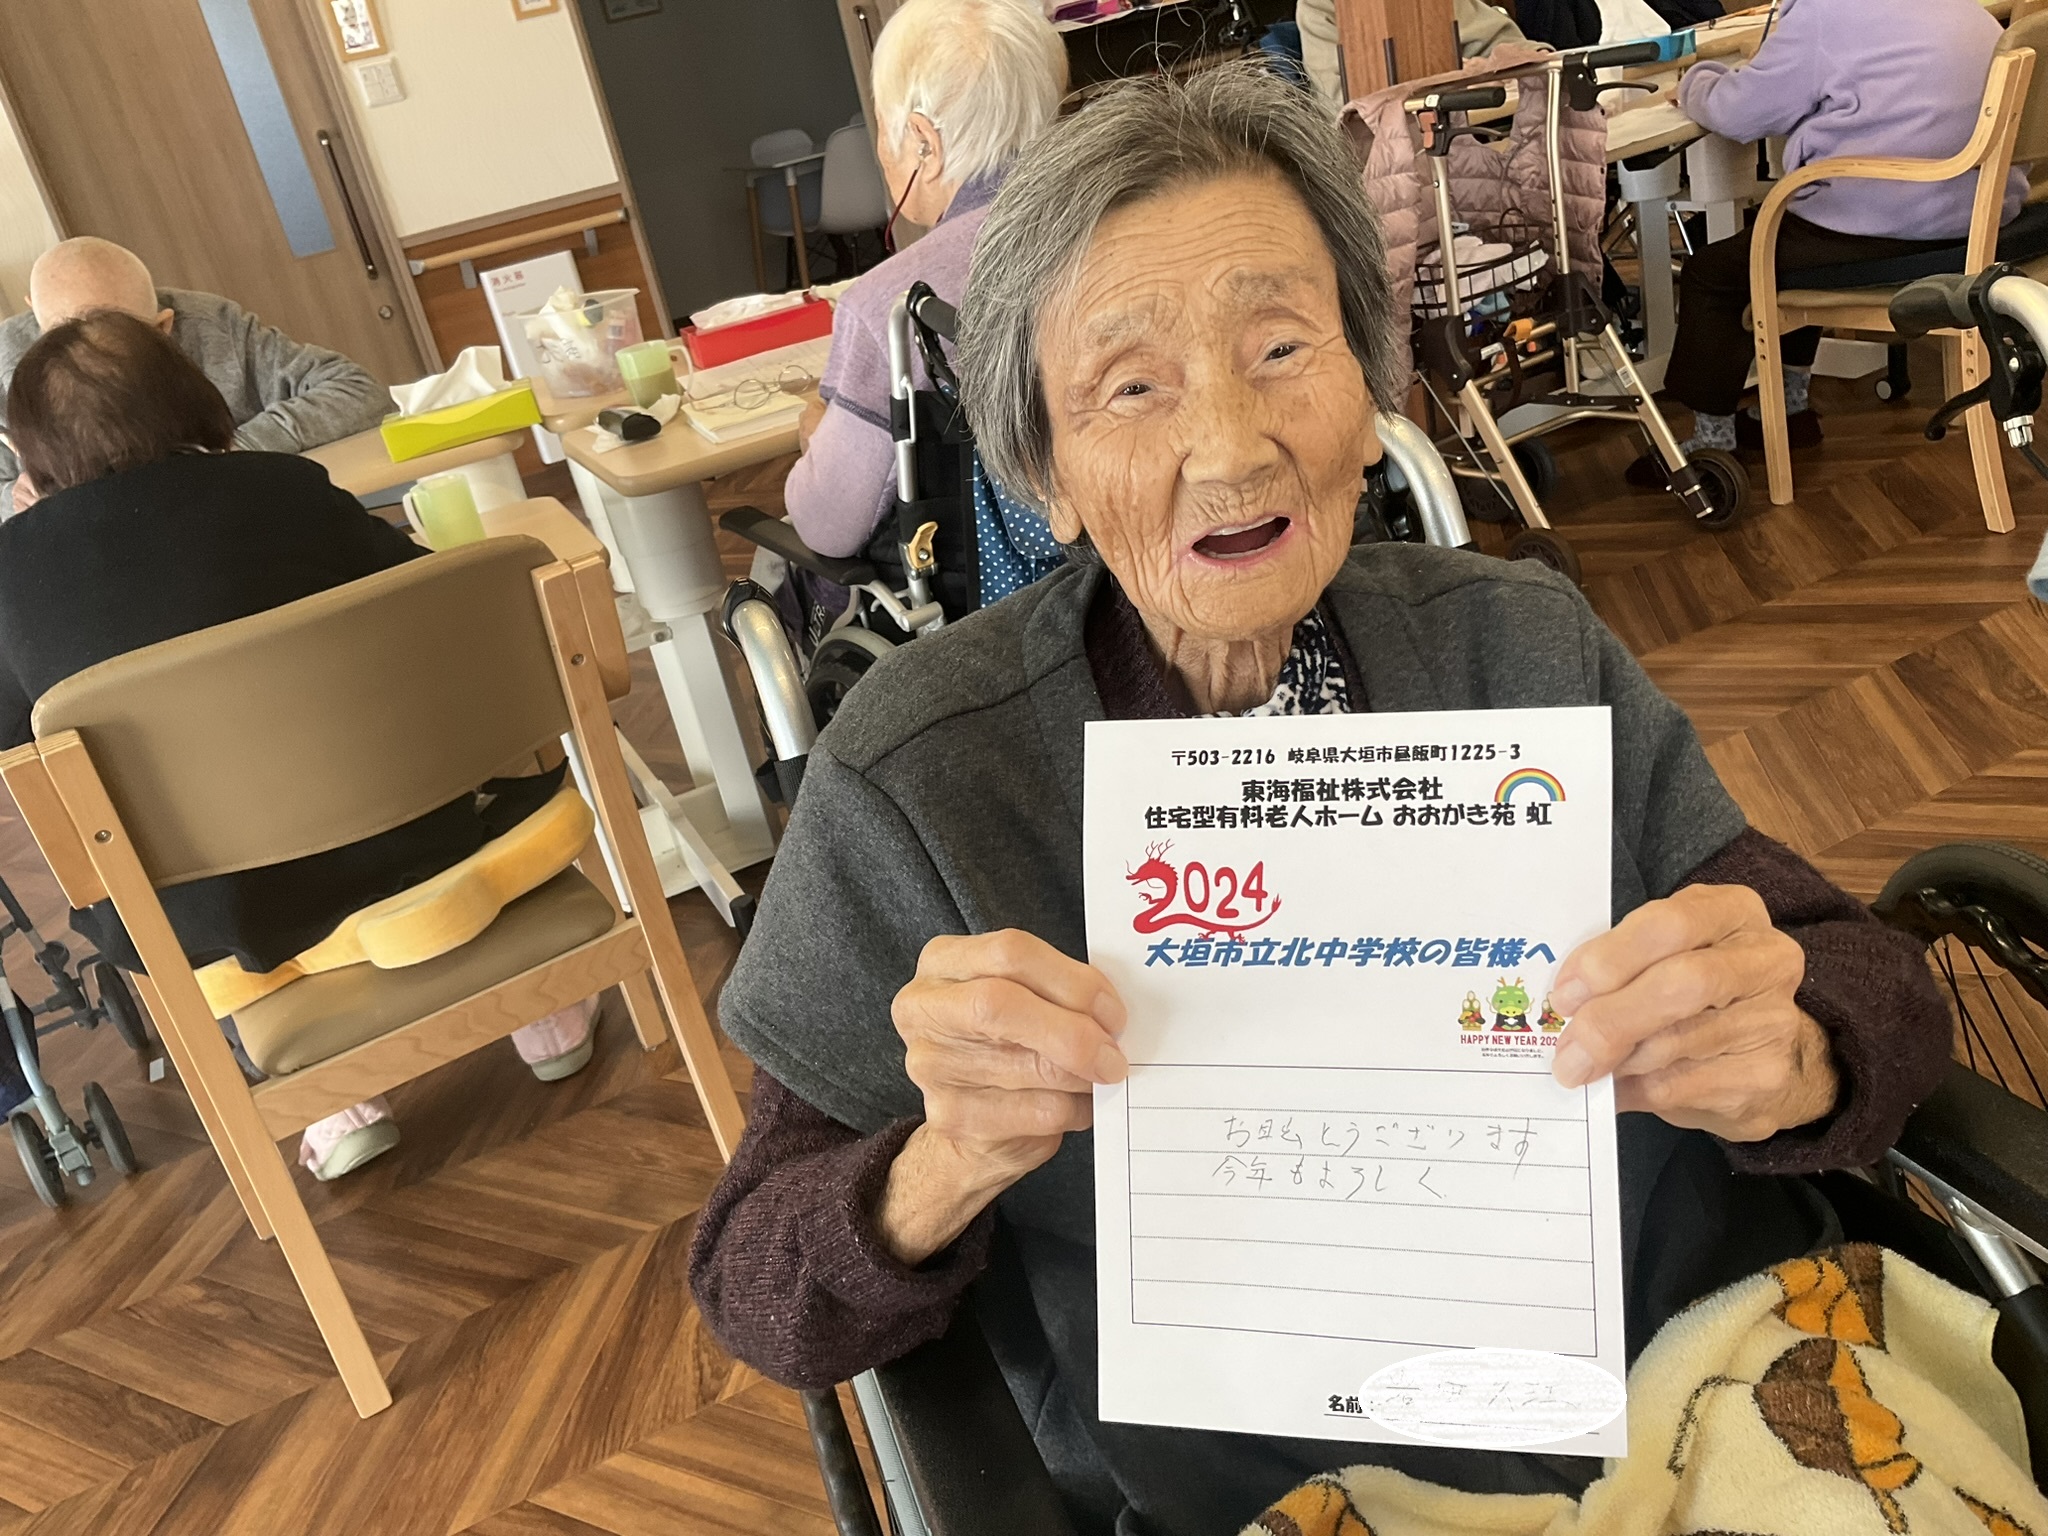 〒503-2216 岐阜県大垣市昼飯町1225-3
東海福祉株式会社
住宅型有料老人ホーム おおがき苑 虹
2024
大垣市立北中学校の皆様へ
HAPPY NEW YEAR 202
おめでとうございます
今年もよろしく
名前:
消火器